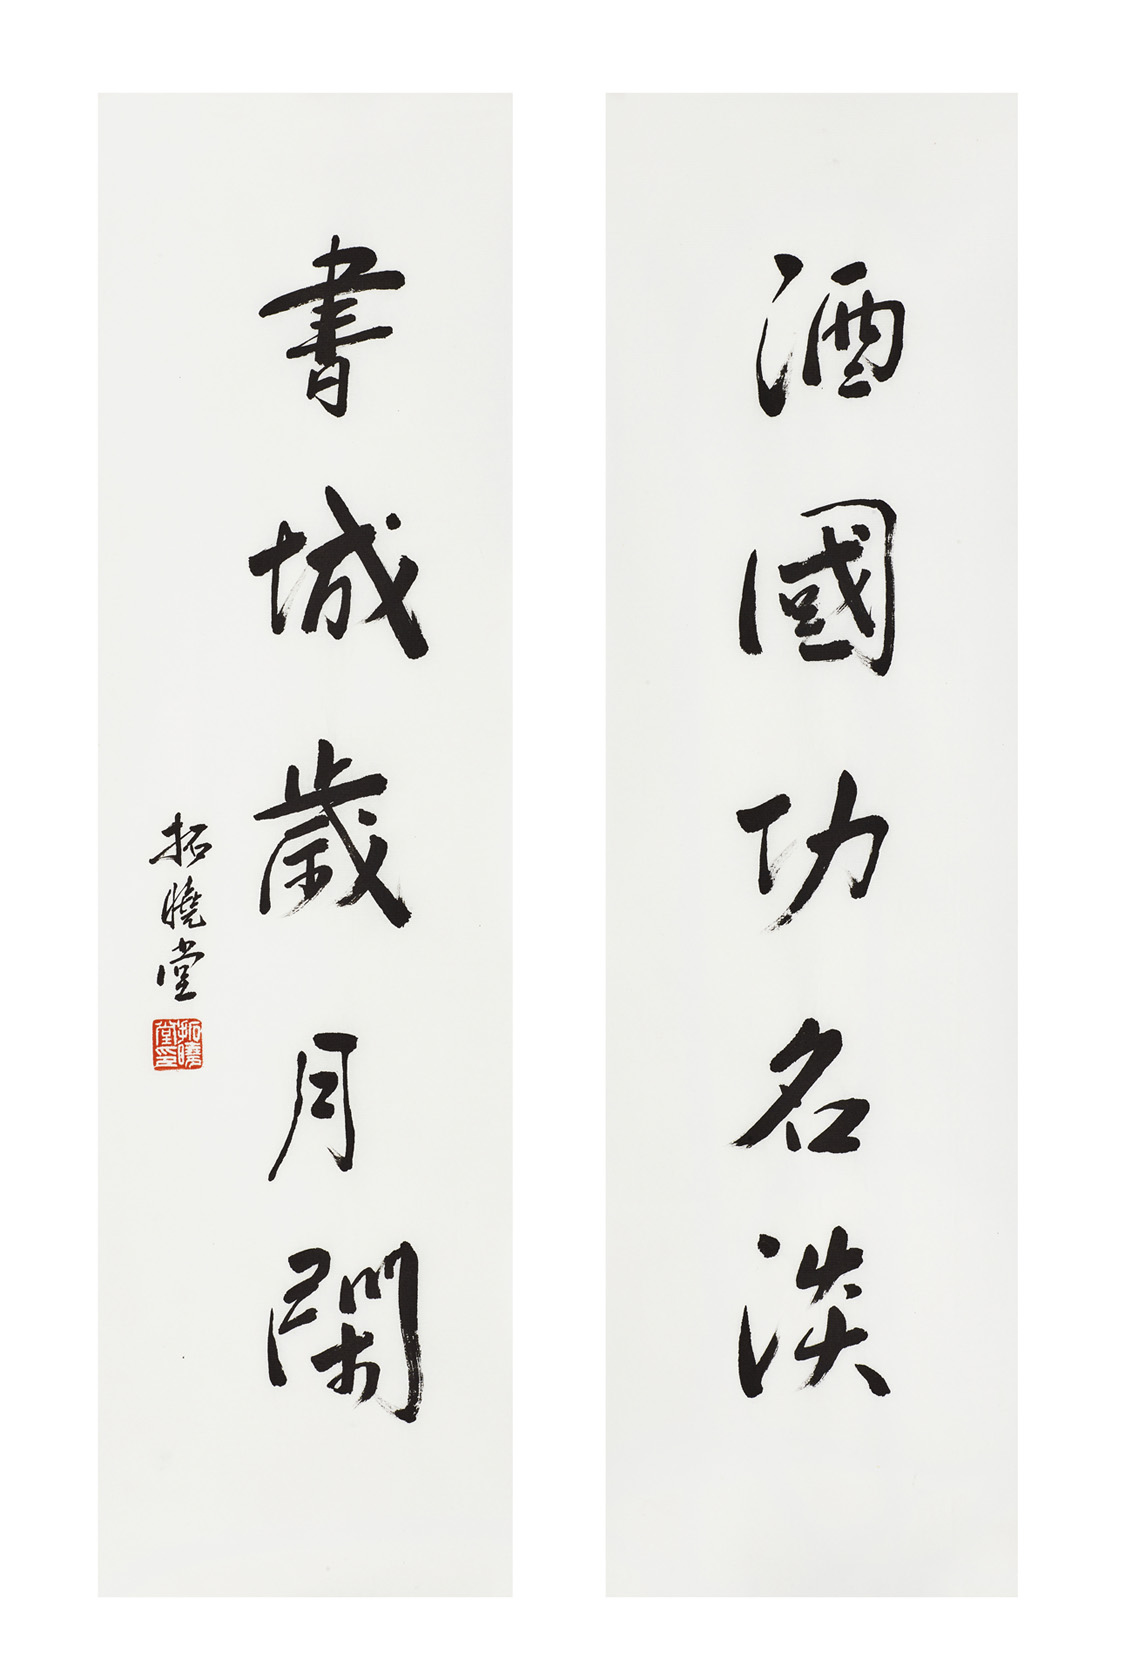 酒國功名淡
書城歲月閑
拓曉堂
拓曉堂印